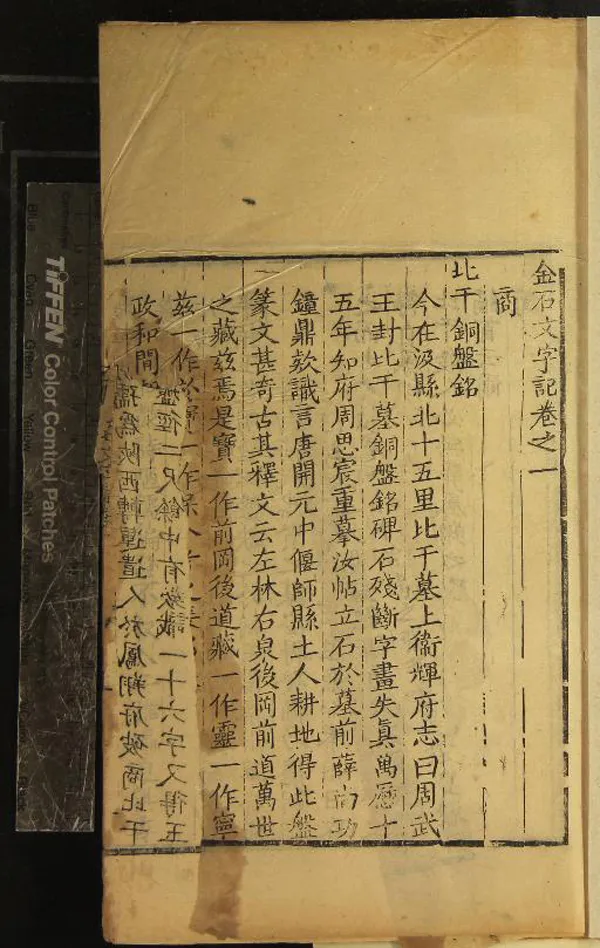 金石文字記卷之一
商
比干銅盤銘
今在汲縣北十五里比干墓上衞輝府志曰周武
王封比干墓銅盤銘碑石殘斷字畫失眞萬曆十
五年知府周思宸重摹汝帖立石於墓前薛尚功
鐘鼎欵識言唐開元中偃師縣土人耕地得此盤
篆文甚奇古其釋文云左林右泉後岡前道萬世
之藏茲焉是寶一作前岡後道藏一作靈一作寧
茲一作於寶一作
政和間
盤徑二尺餘中有欵識一十六字又得玉
孺為陝西轉運遣人於鳳翔府破商比干
TIFFEN Color Control Patches
Blue
Cyan
Green
Yellow